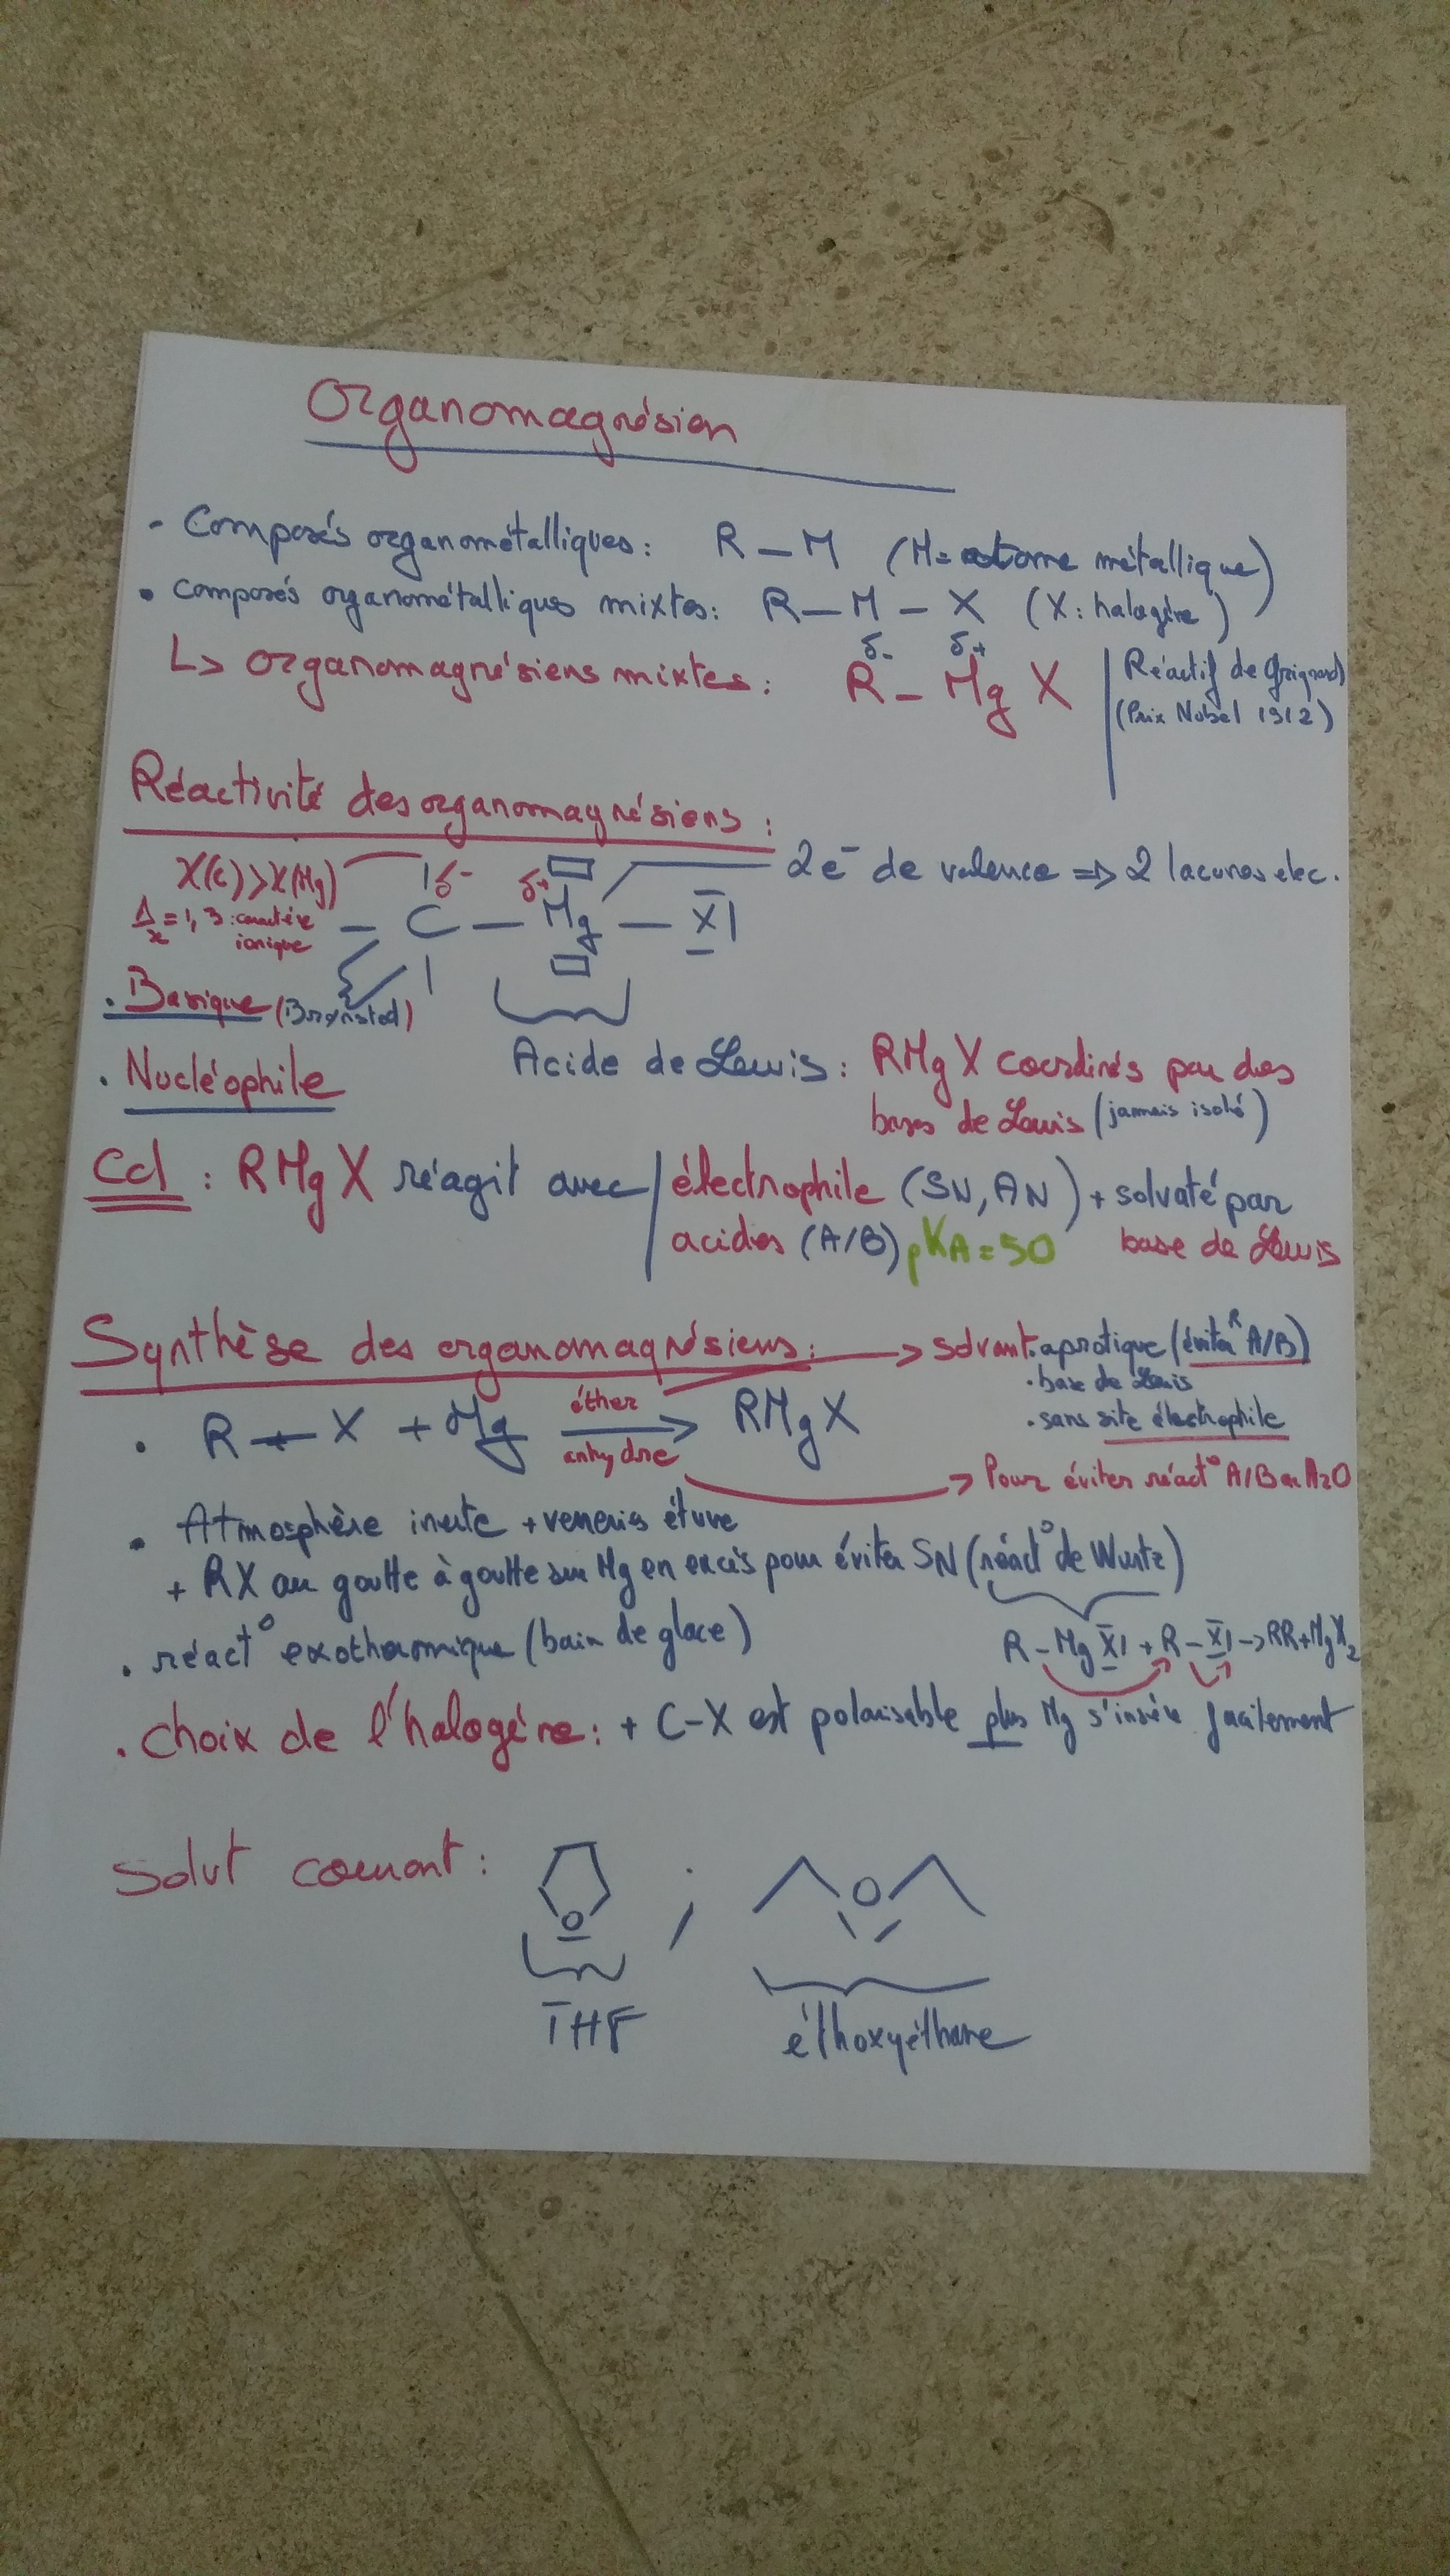 Organomagnésien
- Composés organométalliques: R-M (M= atome métallique)
• composés organométalliques mixtes: R-M-X (X: halogène)
δ- δ+
↳ organomagnésiens mixtes: R-MgX
Réactif de Grignard
(Prix Nobel 1912)
Réactivité des organomagnésiens:
χ(C)>χ(Mg)
Δx=1,3: caractère
ionique
δ- δ+
-C-Mg-X
2e⁻ de valence => 2 lacunes elec.
• Basique (Brønsted)
• Nucléophile
Acide de Lewis: RMgX coordinés par des
bases de Lewis (jamais isolé)
Ccl: RMgX réagit avec électrophile (SN, AN) + solvaté par
acides (A/B) pKA=50 base de Lewis
Synthèse des organomagnésiens: → solvant. aprotique (éviter R A/B)
• base de Lewis
• sans site électrophile
• R-X + Mg éther anhydre → RMgX
→ Pour éviter réact° A/B
• Atmosphère inerte + étuve
+ RX au goutte à goutte sur Mg en excès pour éviter SN (réact° de Wurtz)
R-MgX + R-X → RR+MgX₂
• réact° exothermique (bain de glace)
• choix de l'halogène: + C-X est polarisable plus Mg s'insère facilement
Solvt courant:
O ; O
THF éthoxyéthane